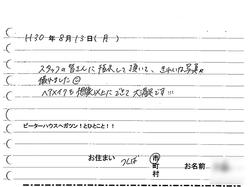 H30年8月13日(月)
スタッフの皆さんに指示して頂いて、きれいな写真が
撮れました☺
ヘアメイクも想像以上にできて大満足です!!!
ピーターハウスへガツン!とひとこと!!
お住まい つくば 市 町 村 お名前